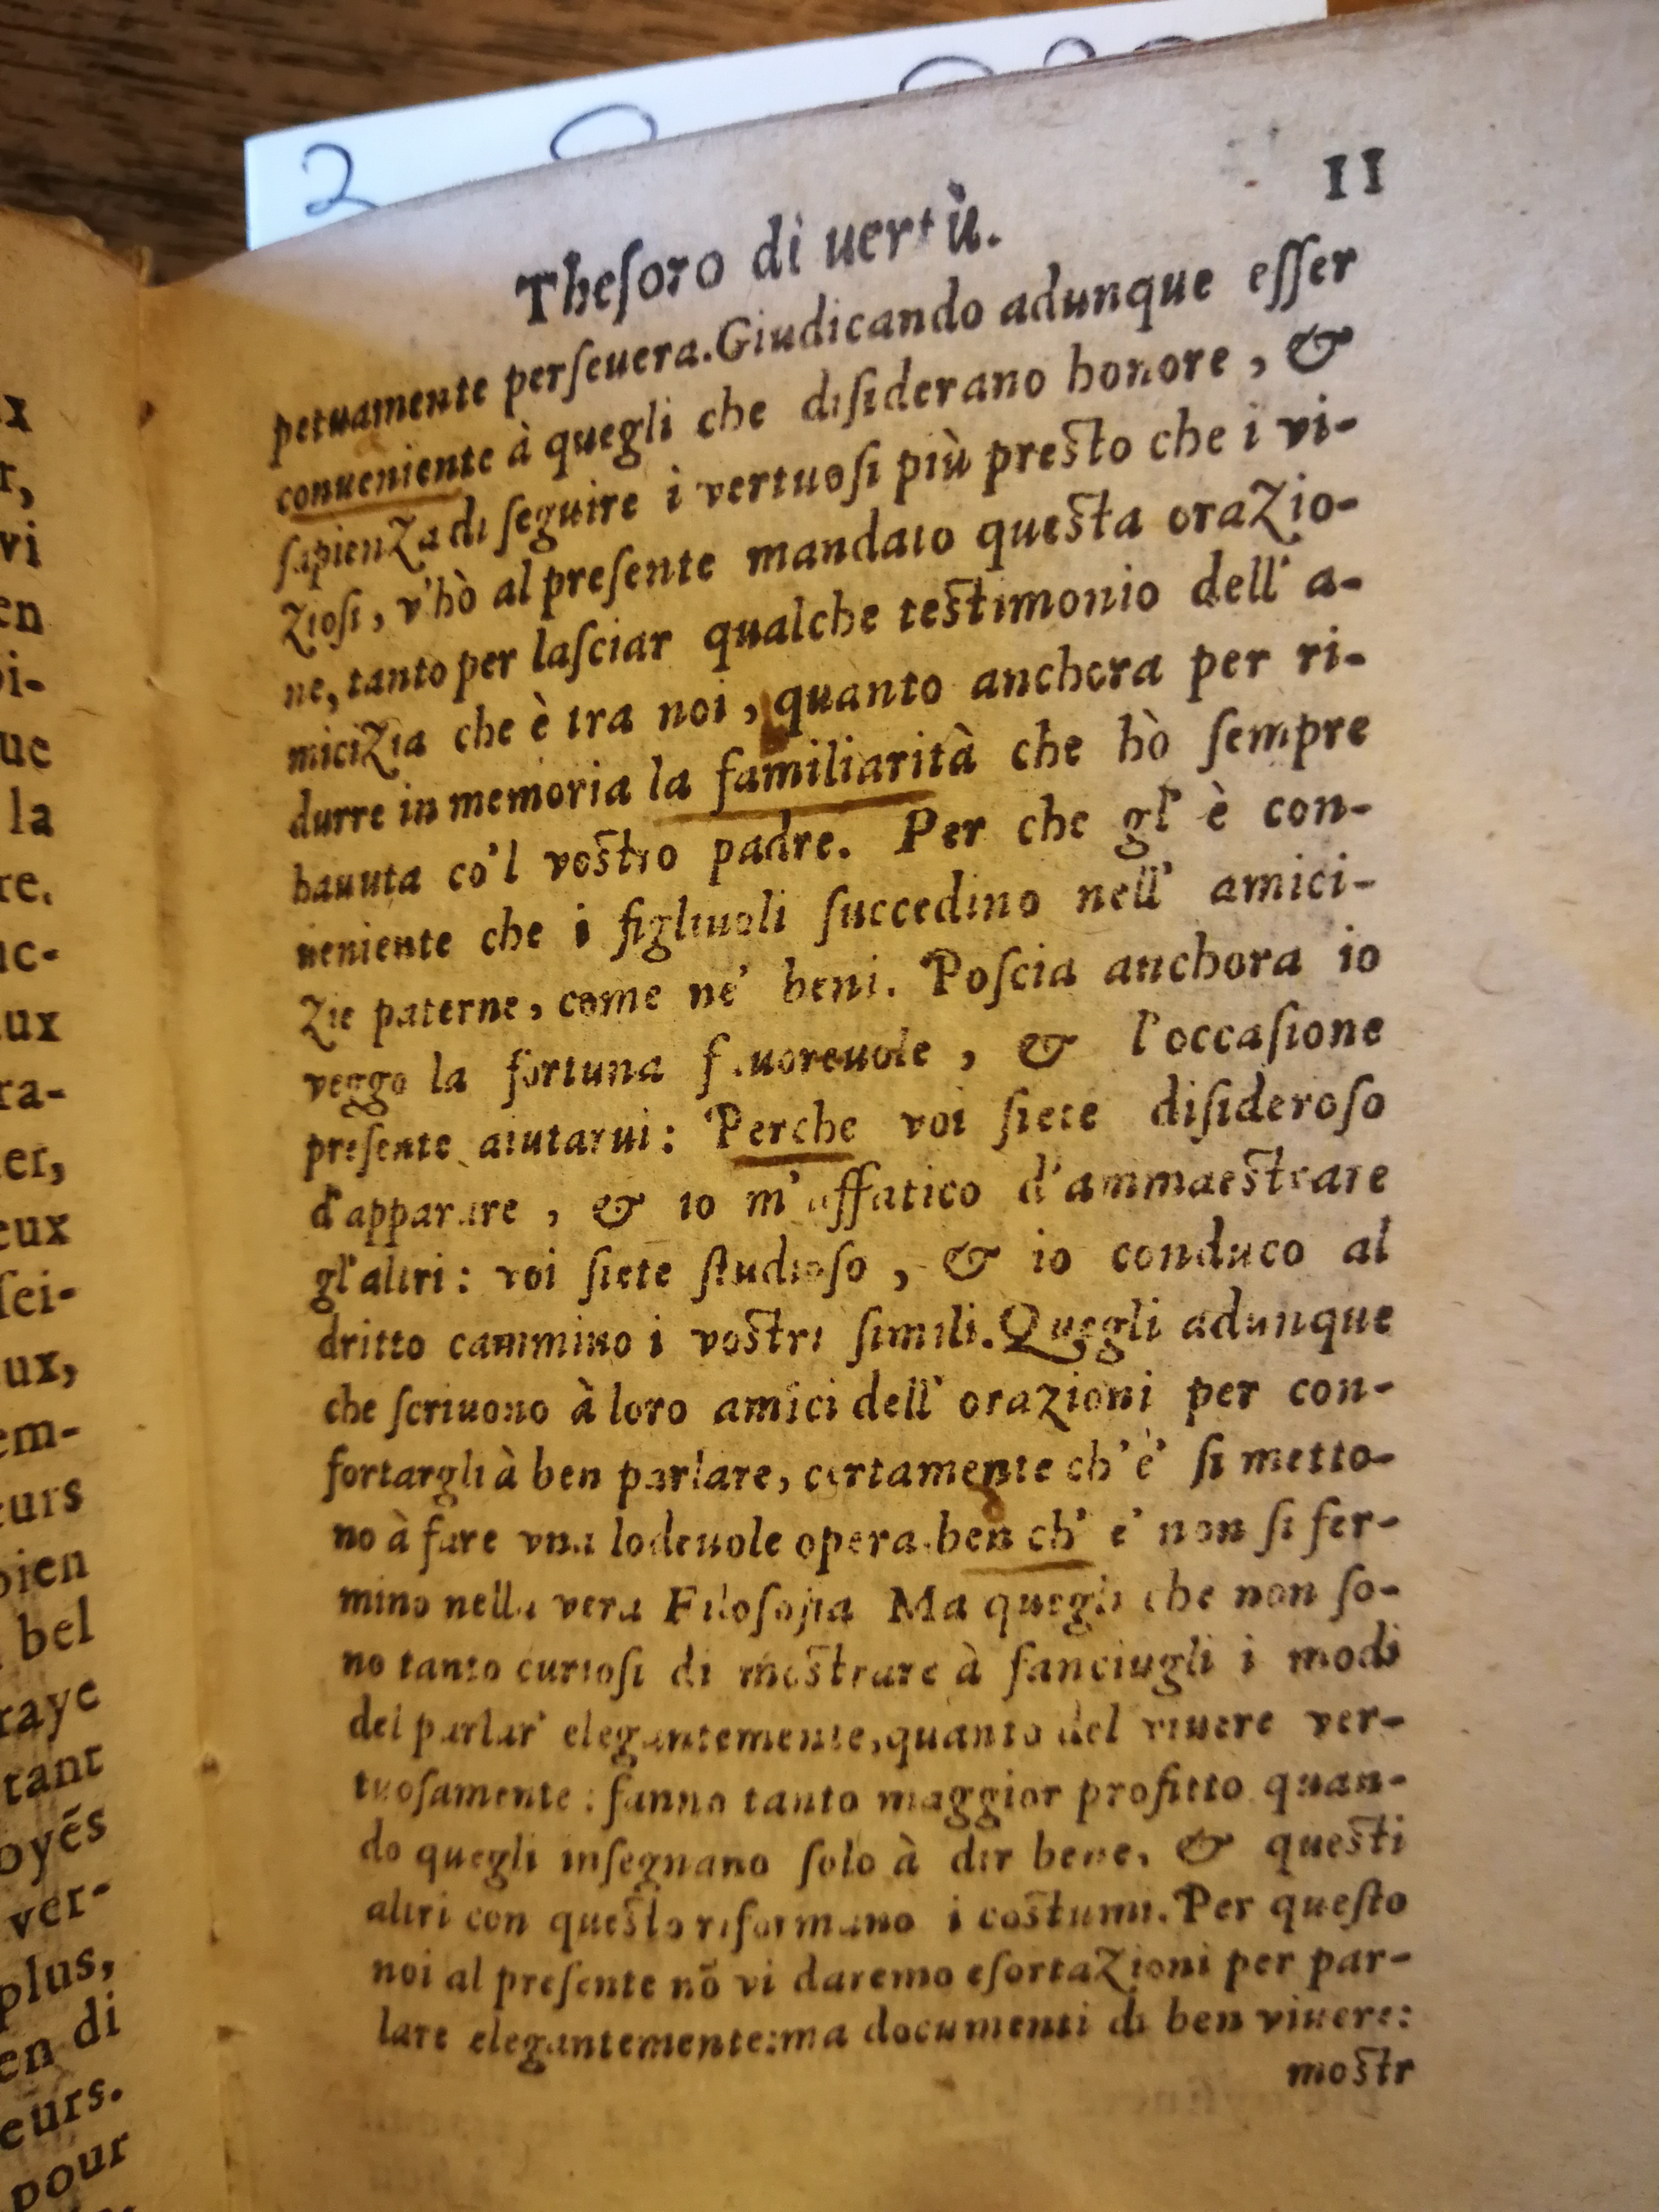 2
11
Theſoro di uertù.
petuamente perſeuera. Giudicando adunque eſſer
conueniente à quegli che diſiderano honore, &
ſapienza di ſeguire i vertuoſi più preſto che i vi-
zioſi, v'hò al preſente mandato queſta orazio-
ne, tanto per laſciar qualche teſtimonio dell' a-
micizia che è tra noi, quanto anchora per ri-
durre in memoria la familiarità che hò ſempre
hauuta co'l voſtro padre. Per che gl' è con-
ueniente che i figliuoli ſuccedino nell' amici-
zie paterne, come ne' beni. Poſcia anchora io
veggo la fortuna fauoreuole, & l'occaſione
preſente aiutarui: Perche voi ſiete diſideroſo
d'apparare, & io m'affatico d'ammaeſtrare
gl'altri: voi ſiete ſtudioſo, & io conduco al
dritto cammino i voſtri ſimili. Quegli adunque
che ſcriuono à loro amici dell' orazioni per con-
fortargli à ben parlare, certamente ch'e' ſi metto-
no à fare vna lodeuole opera. ben ch' e' non ſi fer-
mino nella vera Filoſofia Ma quegli che non ſo-
no tanto curioſi di moſtrare à fanciugli i modi
del parlar' elegantemente, quanto del viuere ver-
tuoſamente: fanno tanto maggior profitto quan-
do quegli inſegnano ſolo à dir bene, & queſti
altri con queſto riformano i coſtumi. Per queſto
noi al preſente nõ vi daremo eſortazioni per par-
lare elegantemente: ma documenti di ben viuere:
moſtr
ux
r,
vi
en
oi-
ue
la
re.
uc-
aux
ra-
er,
eux
ſei-
ux,
em-
eurs
bien
bel
raye
tant
oyés
ver-
plus,
en di
eurs.
pour